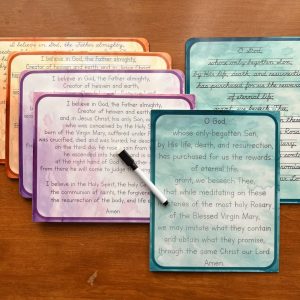 I believe in God, the Father almighty,
I believe in God, the Father almighty,
Creator of heaven and earth
I believe in God, the Father almighty,
Creator of heaven and earth,
I believe in God, the Father almighty,
Creator of heaven and earth,
and in Jesus Christ, his only Son, our
who was conceived by the Holy
born of the Virgin Mary, suffered under
was crucified, died and was buried; he
on the third day he rose
he ascended into
at the right hand of God
from there he will come to judge
I believe in the Holy Spirit, the holy
the communion of saints, the forgiveness
the resurrection of the body, and life
Amen.
O God,
whose only-begotten Son,
by His life, death, and resurrection,
has purchased for us the rewards
of eternal life,
grant, we beseech Thee,
O God,
whose only-begotten Son,
by His life, death, and resurrection,
has purchased for us the rewards
of eternal life,
grant, we beseech Thee,
that while meditating on these
mysteries of the most holy Rosary
of the Blessed Virgin Mary,
we may imitate what they contain
and obtain what they promise,
through the same Christ our Lord.
Amen.